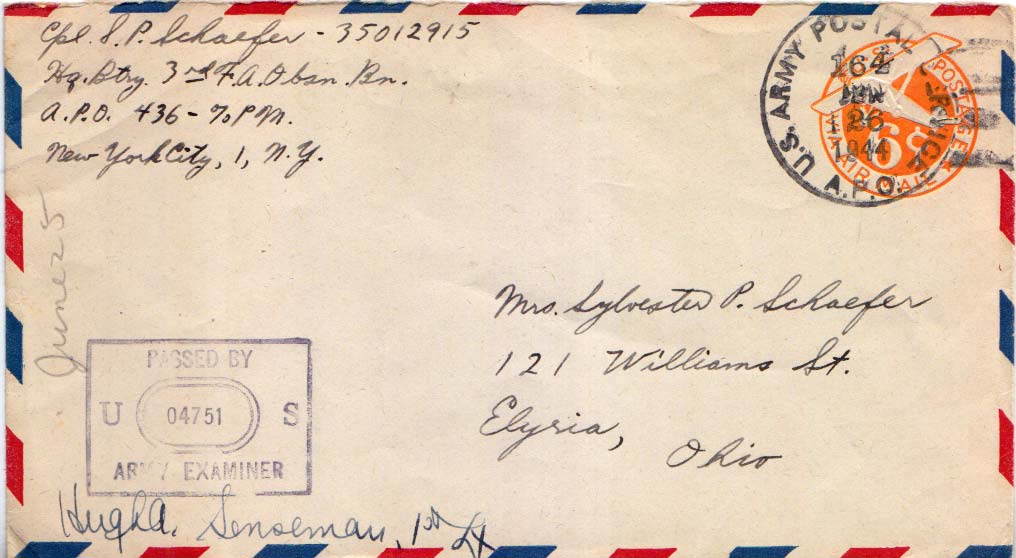 Cpl. S. P. Schaefer - 35012915
Hq. Btry. 3rd F.A. Obsn. Bn.
A.P.O. 436 - % P.M.
New York City, 1, N.Y.
U.S. ARMY POSTAL SERVICE
A.P.O.
JUN
26
1944
U.S. POSTAGE
6¢
VIA AIR MAIL
June 25
Mrs. Sylvester P. Schaefer
121 Williams St.
Elyria,
Ohio
PASSED BY
U 04751 S
ARMY EXAMINER
Hugh A. Senseman, 1st Lt